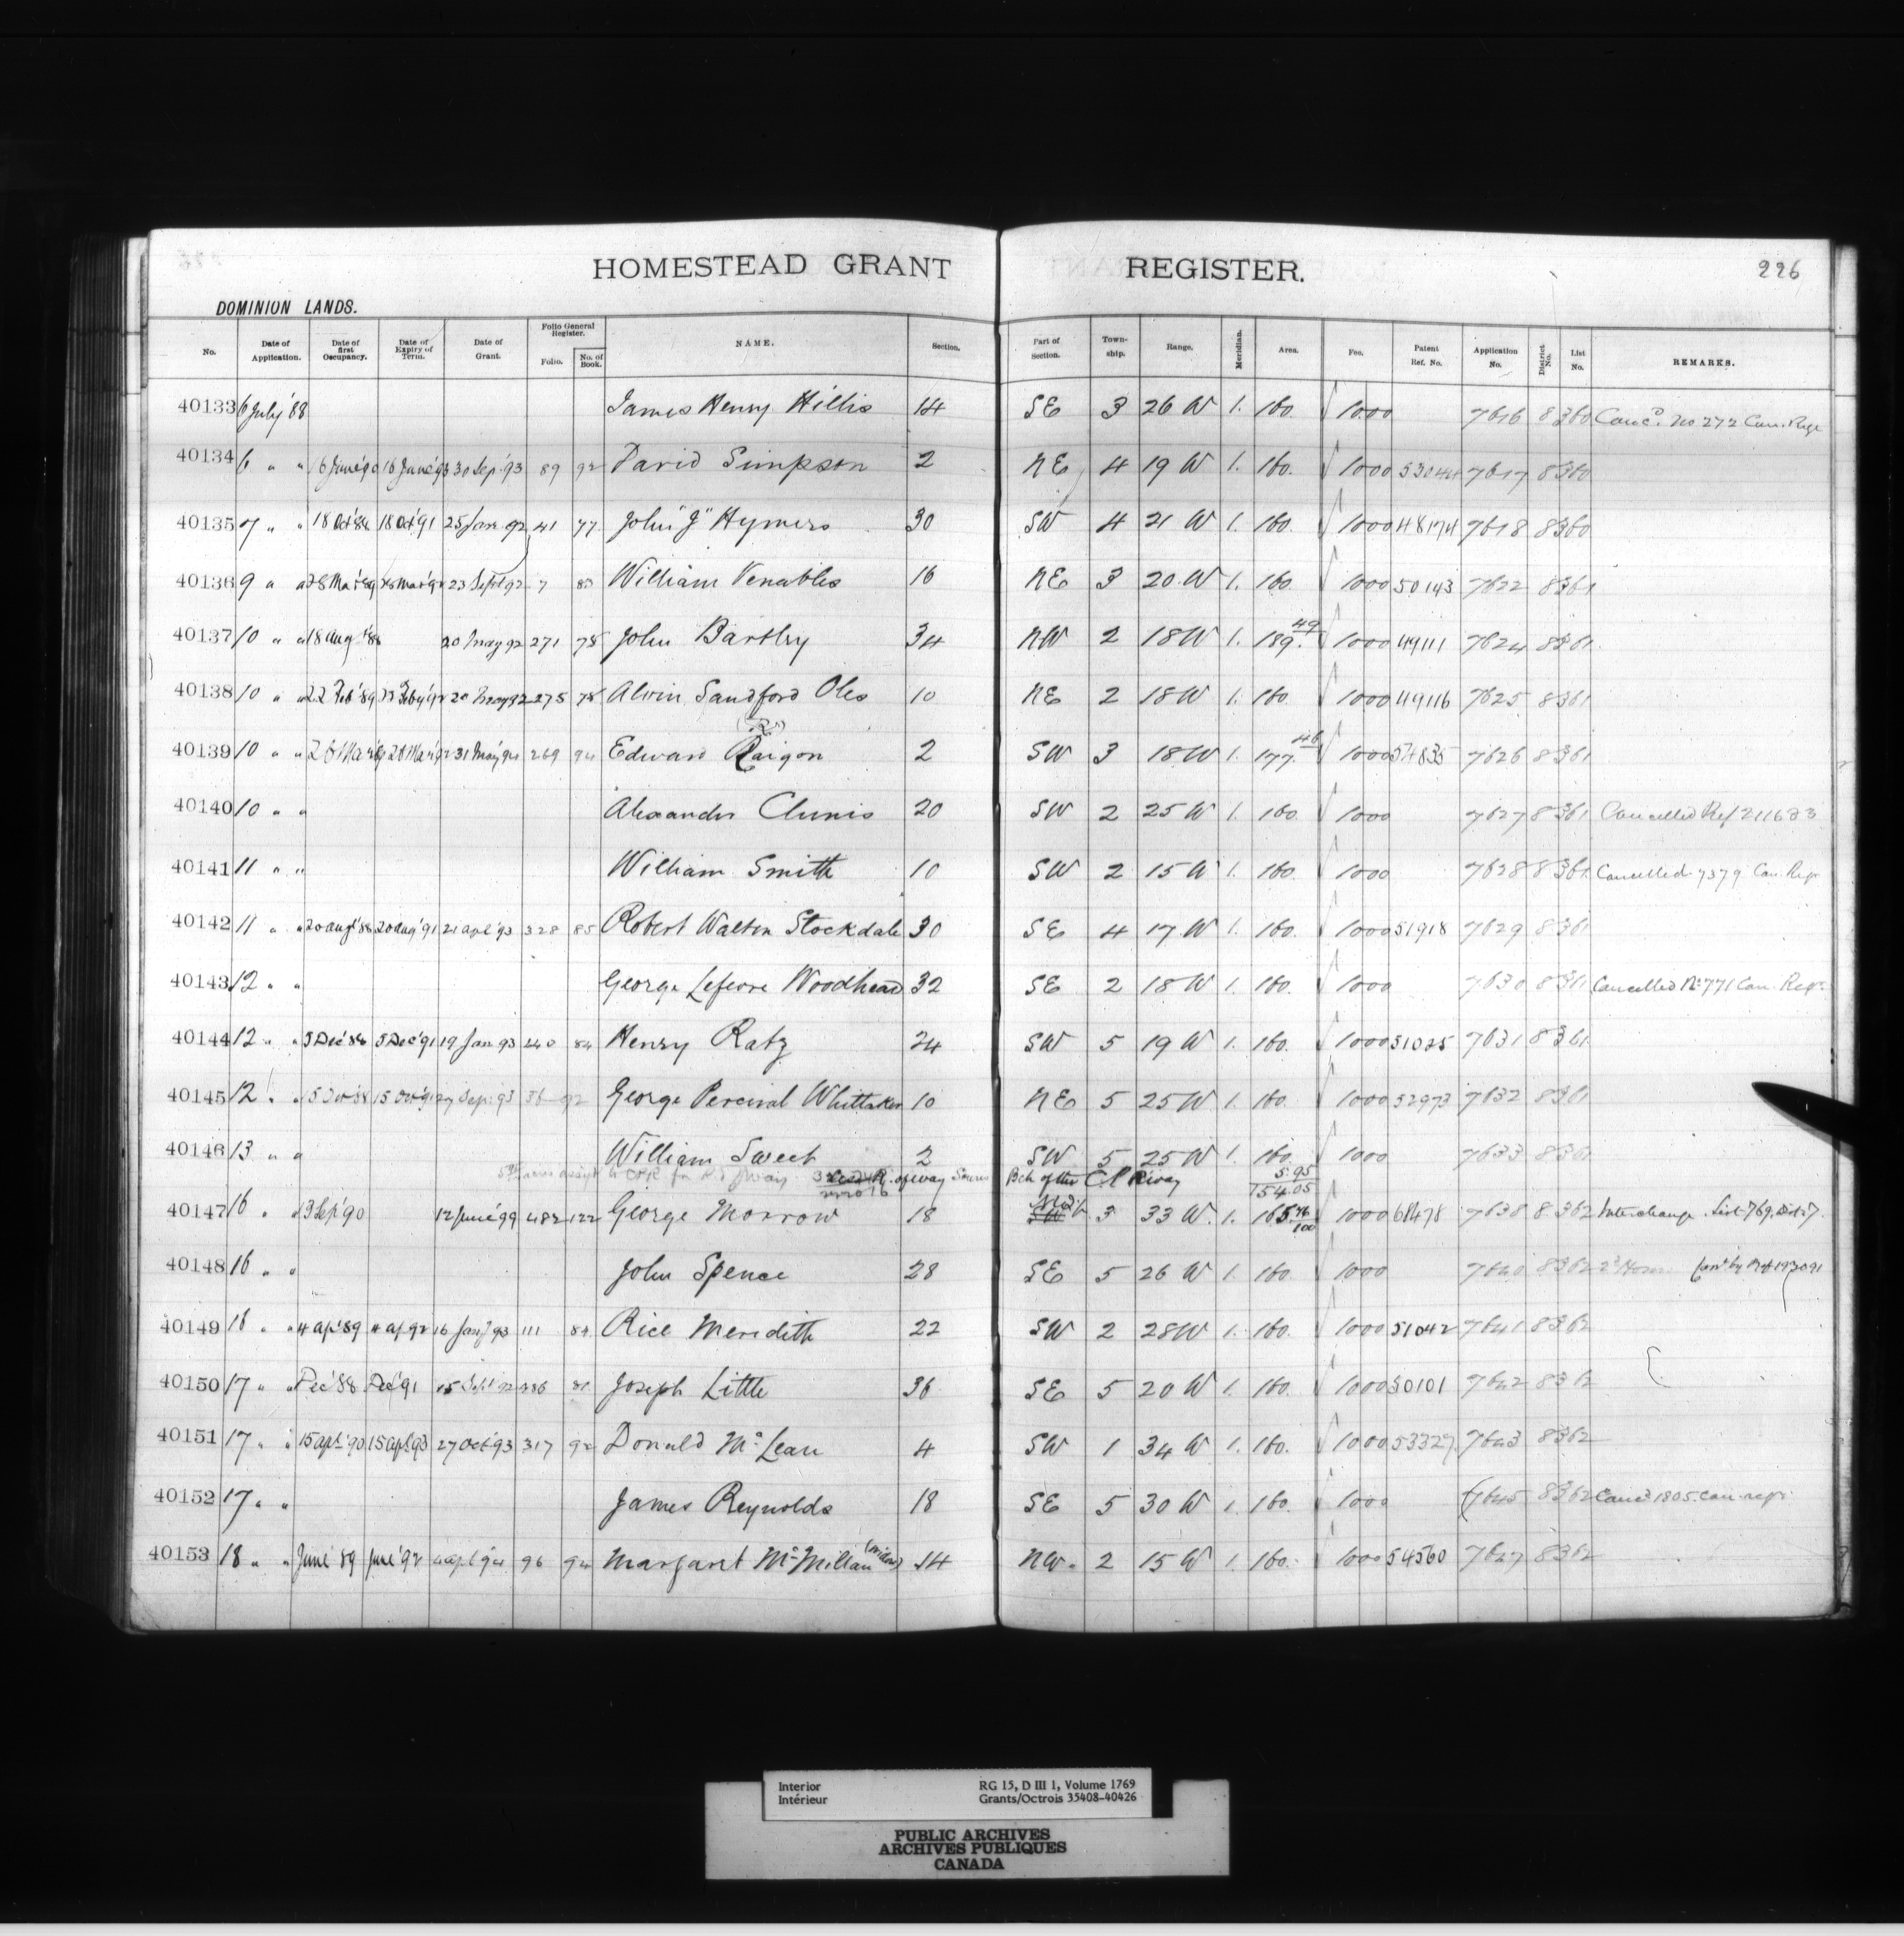 HOMESTEAD GRANT REGISTER. 226
DOMINION LANDS.
No. Date of Application. Date of first Occupancy. Date of Expiry of Term. Date of Grant. Folio General Register. Folio. No. of Book. NAME. Section. Part of Section. Town-ship. Range. Meridian. Area. Fee. Patent Ref. No. Application No. District No. List No. REMARKS.
40133 6 July '88 James Henry Hillis 14 SE 3 26 W 1. 160. 1000 7616 8 360 Canc'd. No 272 Can. Regr
40134 6 " " 16 June '90 16 June '93 30 Sep. '93 89 92 David Simpson 2 NE 4 19 W 1. 160. 1000 53044 7617 8 360
40135 7 " " 18 Oct '88 18 Oct '91 25 Jan. 92 41 77 John "J" Hymers 30 SW 4 21 W 1. 160. 1000 48174 7618 8 360
40136 9 " " 28 Mar '89 28 Mar '92 23 Sept 92 7 William Venables 16 NE 3 20 W 1. 160. 1000 50143 7622 8 361
40137 10 " " 18 Aug '88 20 May 92 271 78 John Bartley 34 NW 2 18 W 1. 189.49 1000 49111 7624 8 361
40138 10 " " 22 Feb '89 22 Feby '92 20 May 92 275 78 Alvin Sandford Oles 10 NE 2 18 W 1. 160. 1000 49116 7625 8 361
("R")
40139 10 " " 28 Mar '89 28 Mar '92 31 May '94 269 94 Edward Raigon 2 SW 3 18 W 1. 177.46 1000 54835 7626 8 361
40140 10 " " Alexander Clunis 20 SW 2 25 W 1. 160. 1000 7627 8 361 Cancelled Ref 211623
40141 11 " " William Smith 10 SW 2 15 W 1. 160. 1000 7628 8 361 Cancelled 7379 Can. Regr
40142 11 " " 20 Aug '88 20 Aug '91 21 Apl '93 328 85 Robert Walton Stockdale 30 SE 4 17 W 1. 160. 1000 51918 7629 8 361
40143 12 " " George Lefevre Woodhead 32 SE 2 18 W 1. 160. 1000 7630 8 361 Cancelled No 771 Can. Regr.
40144 12 " " 5 Dec '88 5 Dec '91 19 Jan 93 240 84 Henry Ratz 24 SW 5 19 W 1. 160. 1000 51025 7631 8 361
40145 12 " " 15 Oct '88 15 Oct '91 27 Sep. 93 36 92 George Percival Whittaker 10 NE 5 25 W 1. 160. 1000 52973 7632 8 361
40146 13 " " William Sweet 2 SW 5 25 W 1. 160. 1000 7633 8 361
acres assigd to CPR for Rt of way R. of way Souris Bch of the C P Rway 5.95
154.05
40147 16 " " 13 Sep '90 12 June '99 482 122 George Morrow 18 3 33 W. 1. 165.76/100 1000 68478 7638 8 362 Interchange List 769. Dist 7.
40148 16 " " John Spence 28 SE 5 26 W 1. 160 1000 7640 8 362 2d Hom Can'd by Ref 193091
40149 16 " " 4 Ap '89 4 Ap 92 16 Jany 93 111 84 Rice Meredith 22 SW 2 28 W 1. 160. 1000 51042 7641 8 362
40150 17 " " Dec '88 Dec '91 15 Sept 92 Joseph Little 36 SE 5 20 W 1. 160. 1000 50101 7642 8 362
40151 17 " " 15 Apl '90 15 Apl 93 27 Oct '93 317 92 Donald McLean 4 SW 1 34 W 1. 160. 1000 53327 7643 8 362
40152 17 " " James Reynolds 18 SE 5 30 W 1. 160. 1000 7645 8 362 Canc'd 1805 Can. regr.
40153 18 " " June '89 June '92 4 Apl '94 96 94 Margaret McMillan (widow) 14 NW. 2 15 W 1. 160. 1000 54560 7647 8 362
Interior
Intérieur
RG 15, D III 1, Volume 1769
Grants/Octrois 35408-40426
PUBLIC ARCHIVES
ARCHIVES PUBLIQUES
CANADA